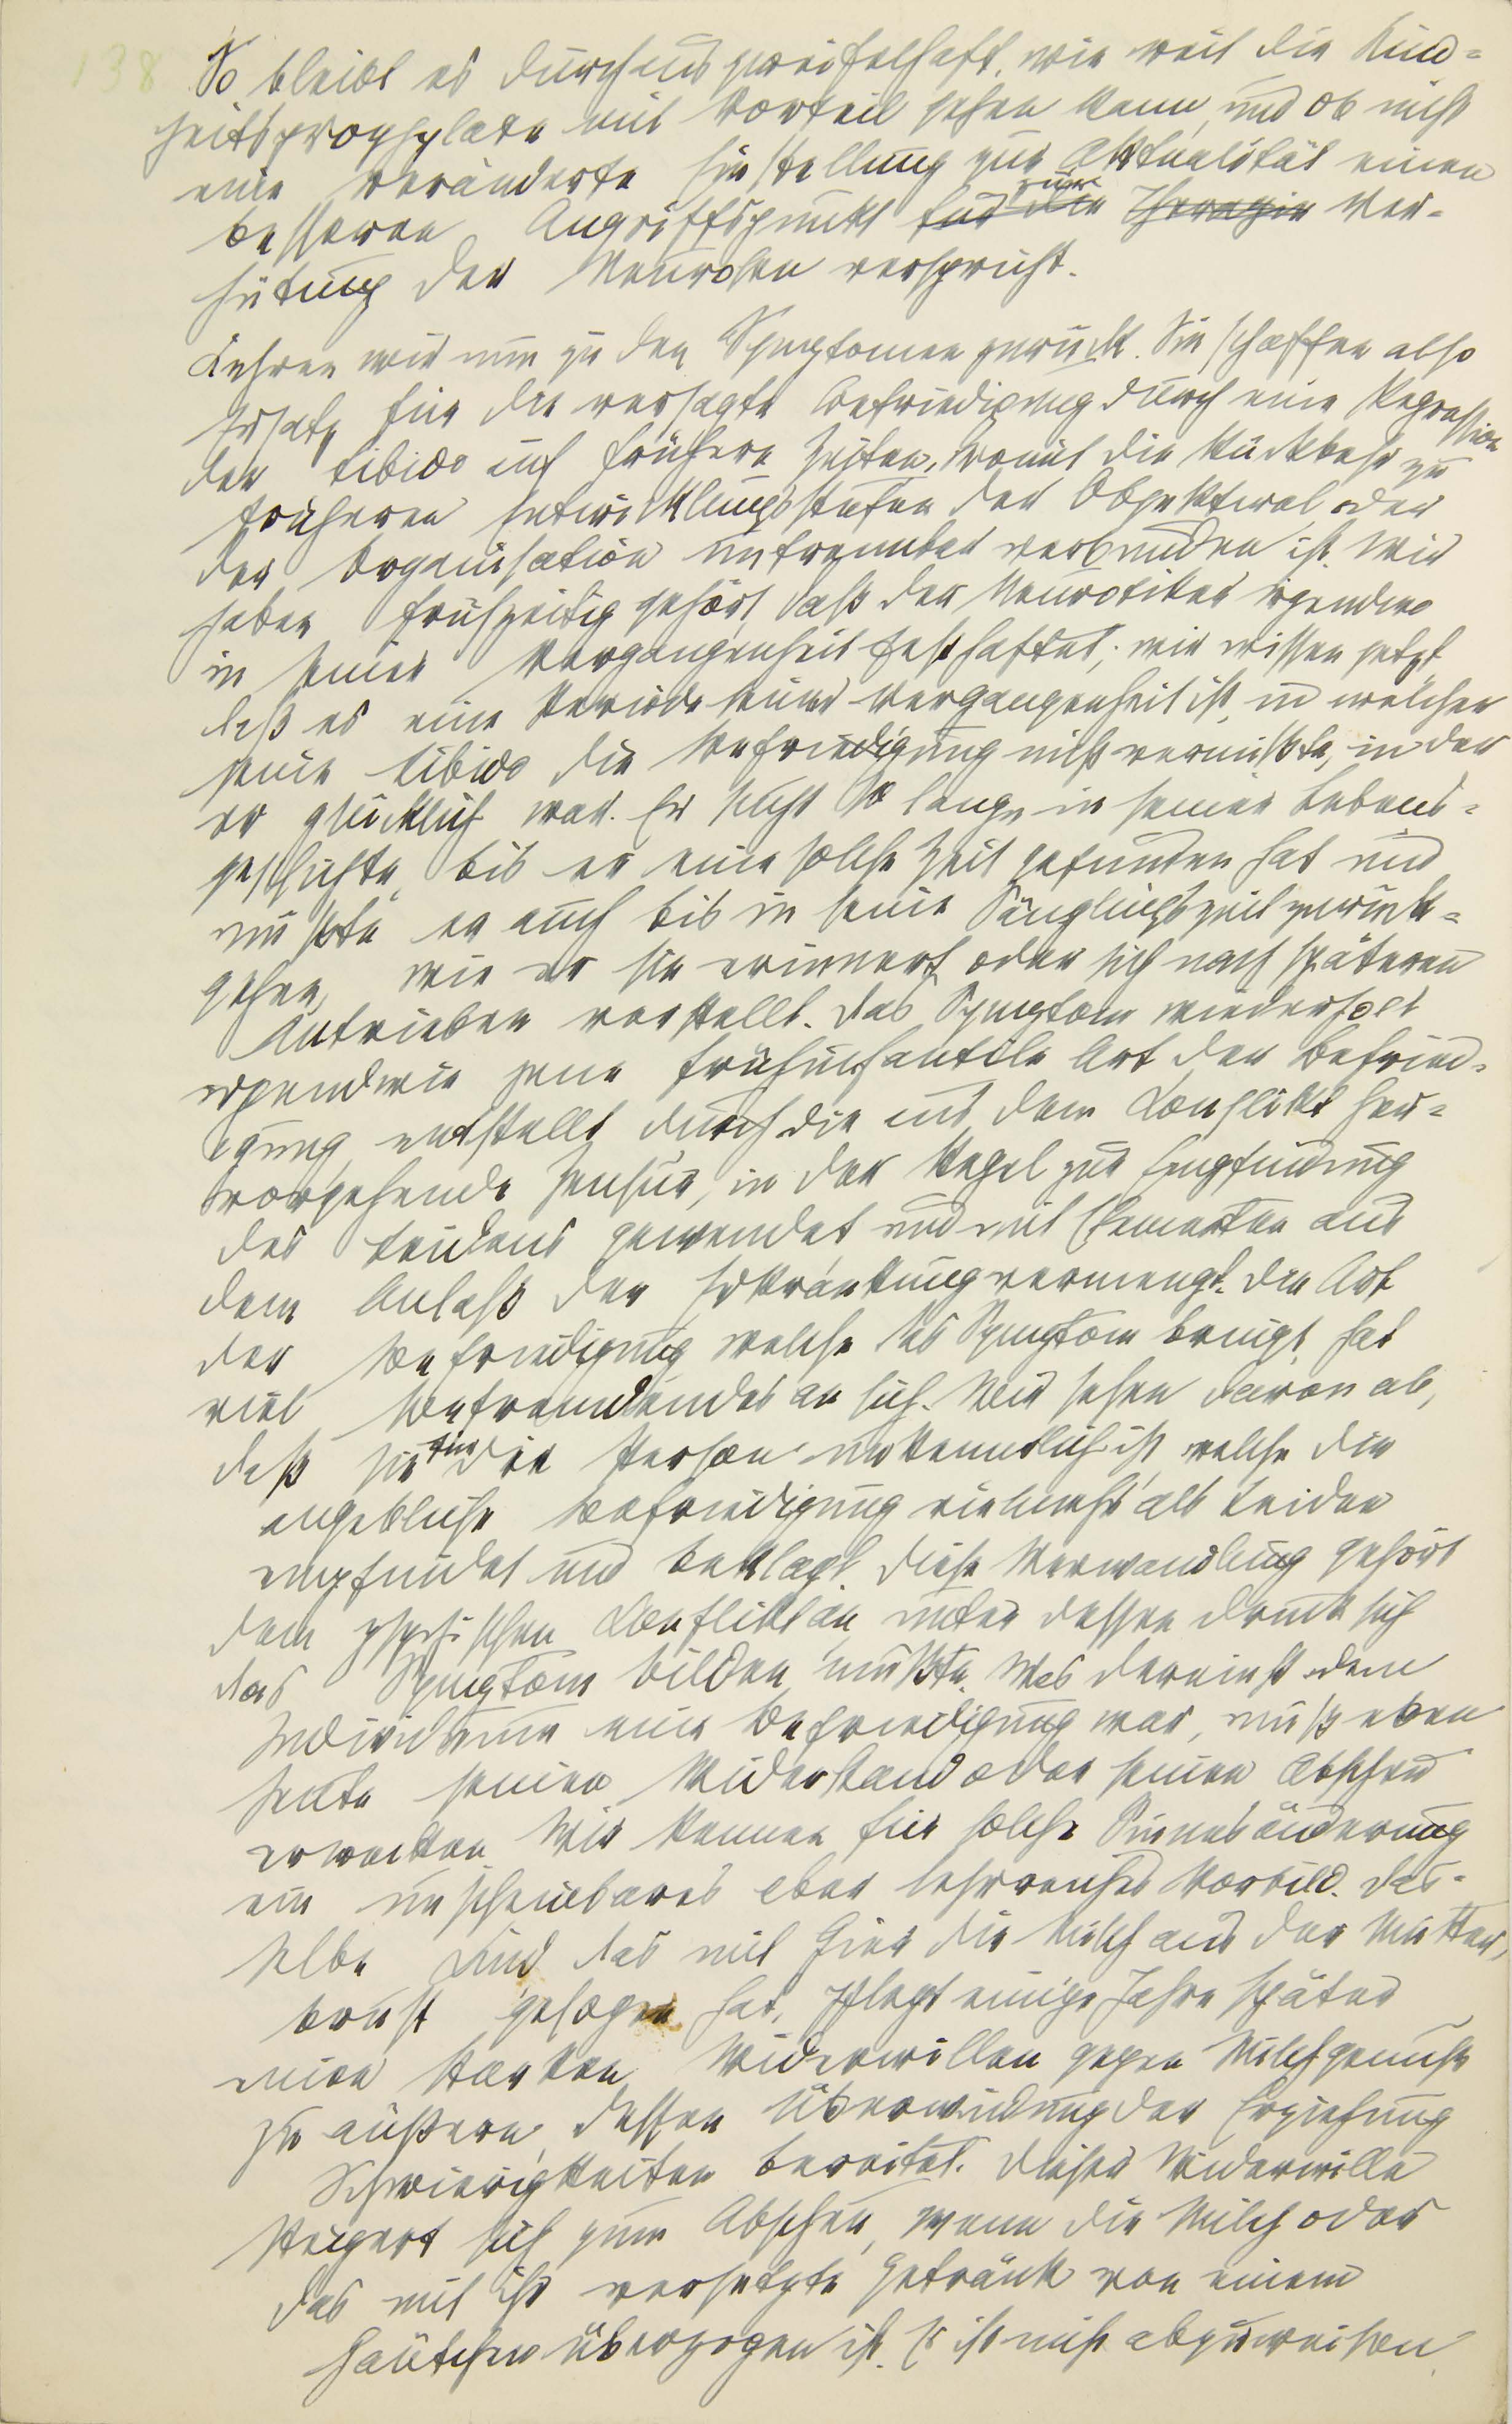 138
So bleibt es durchaus zweifelhaft, wie weit die Kind-
heitsprophylaxe mit Vorteil gehen kann, und ob nicht
eine veränderte Einstellung zur Aktualität einen
besseren Angriffspunkt für die Therapie zur Ver-
hütung der Neurosen verspricht.
Kehren wir nun zu den Symptomen zurück. Sie schaffen also
Ersatz für die versagte Befriedigung durch eine Regression
der Libido auf frühere Zeiten, womit die Rückkehr zu
früheren Entwicklungsstufen der Objektwal oder
der Organisation untrennbar verbunden ist. Wir
haben frühzeitig gehört, daß der Neurotiker irgendwo
in seiner Vergangenheit festhaftet; wir wissen jetzt
daß es eine Periode seiner Vergangenheit ist, in welcher
seine Libido die Befriedigung nicht vermißte, in der
er glücklich war. Er sucht so lange in seiner Lebens-
geschichte, bis er eine solche Zeit gefunden hat und
müßte er auch bis in seine Säuglingszeit zurück-
gehen, wie er sie erinnert oder sich nach späteren
Antrieben vorstellt. Das Symptom wiederholt
irgendwie jene frühinfantile Art der Befried-
igung, entstellt durch die aus dem Konflikt her-
vorgehende Zensur, in der Regel zur Empfindung
des Leidens gewendet und mit Elementen aus
dem Anlaß der Erkrankung vermengt. Die Art
der Befriedigung, welche das Symptom bringt, hat
viel Befremdendes an sich. Wir sehen davon ab,
daß sie für die Person unkenntlich ist, welche die
angebliche Befriedigung vielmehr als Leiden
empfindet und beklagt. Diese Verwandlung gehört
dem psychischen Konflikt an, unter dessen Druck sich
das Symptom bilden mußte. Was dereinst dem
Individuum eine Befriedigung war, muß eben
heute seinen Widerstand oder seinen Abscheu
erwecken. Wir kennen für solche Sinnesänderung
ein unscheinbares aber lehrreiches Vorbild. Das-
selbe Kind, das mit Gier die Milch aus der Mutter-
brust gesogen hat, pflegt einige Jahre später
einen starken Widerwillen gegen Milchgenuß
zu äußern, dessen Überwindung der Erziehung
Schwierigkeiten bereitet. Dieser Widerwille
steigert sich zum Abscheu, wenn die Milch oder
das mit ihr versetzte Getränk von einem
Häutchen überzogen ist. Es ist nicht abzuweisen,